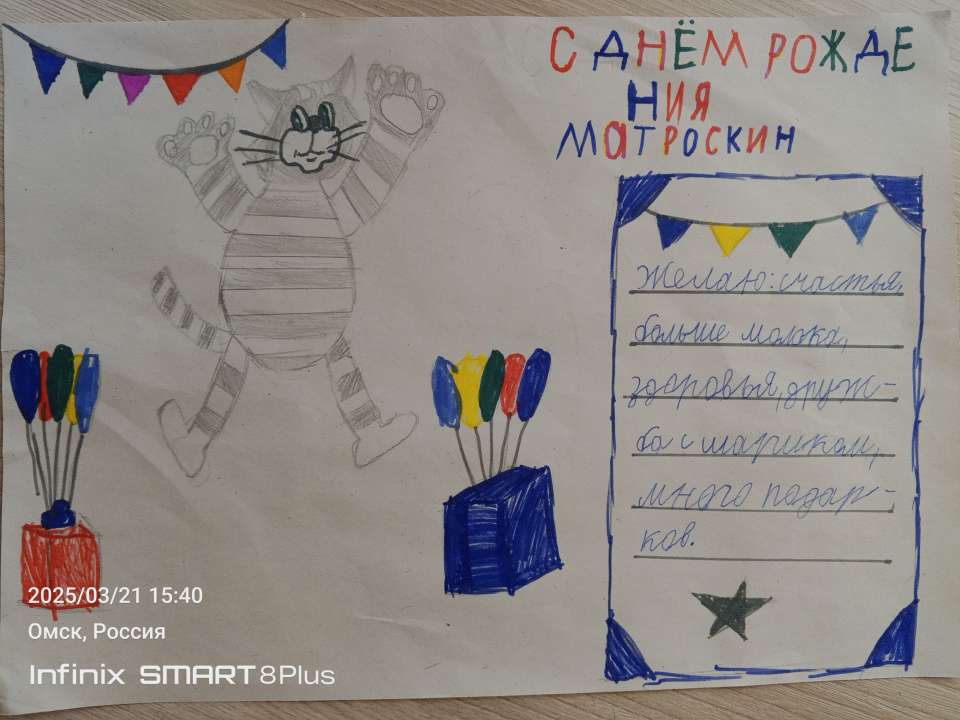 С ДНЁМ РОЖДЕ
НИЯ
МАТРОСКИН
Желаю: счастья,
больше молока,
здоровья, друж-
ба с шариком,
много подар-
ков.
2025/03/21 15:40
Омск, Россия
Infinix SMART 8Plus